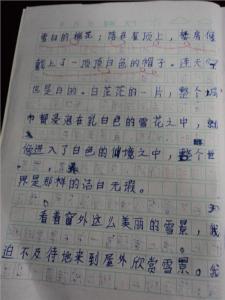 雪白的棉花；落在屋顶上，给房
戴上了一顶顶白色的帽子。连天
也是白的。白茫茫的一片，整个城
市都浸泡在乳白色的雪花之中，
进入了白色的仙境之中，整个世
界是那样的洁白无瑕。
看着窗外这么美丽的雪景，我
迫不及待地来到屋外欣赏雪景。